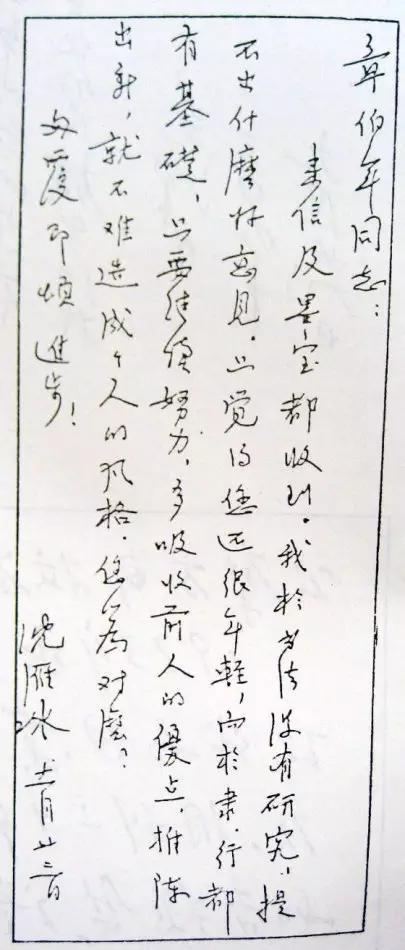 章伯年同志：
来信及墨宝都收到。我於书法没有研究，提
不出什麽好意见。止觉得您还很年轻，而於隶、行都
有基礎，止要继续努力，多吸收前人的優点，推陈
出新，就不难造成个人的风格。您以为对麽？
匆覆即颂進步！
沈雁冰 十一月廿三日